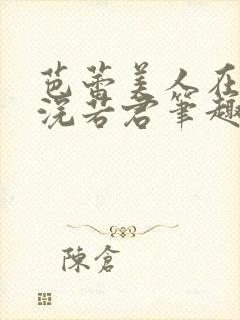 芭蕾美人在
浣若君筆趣
陳倉